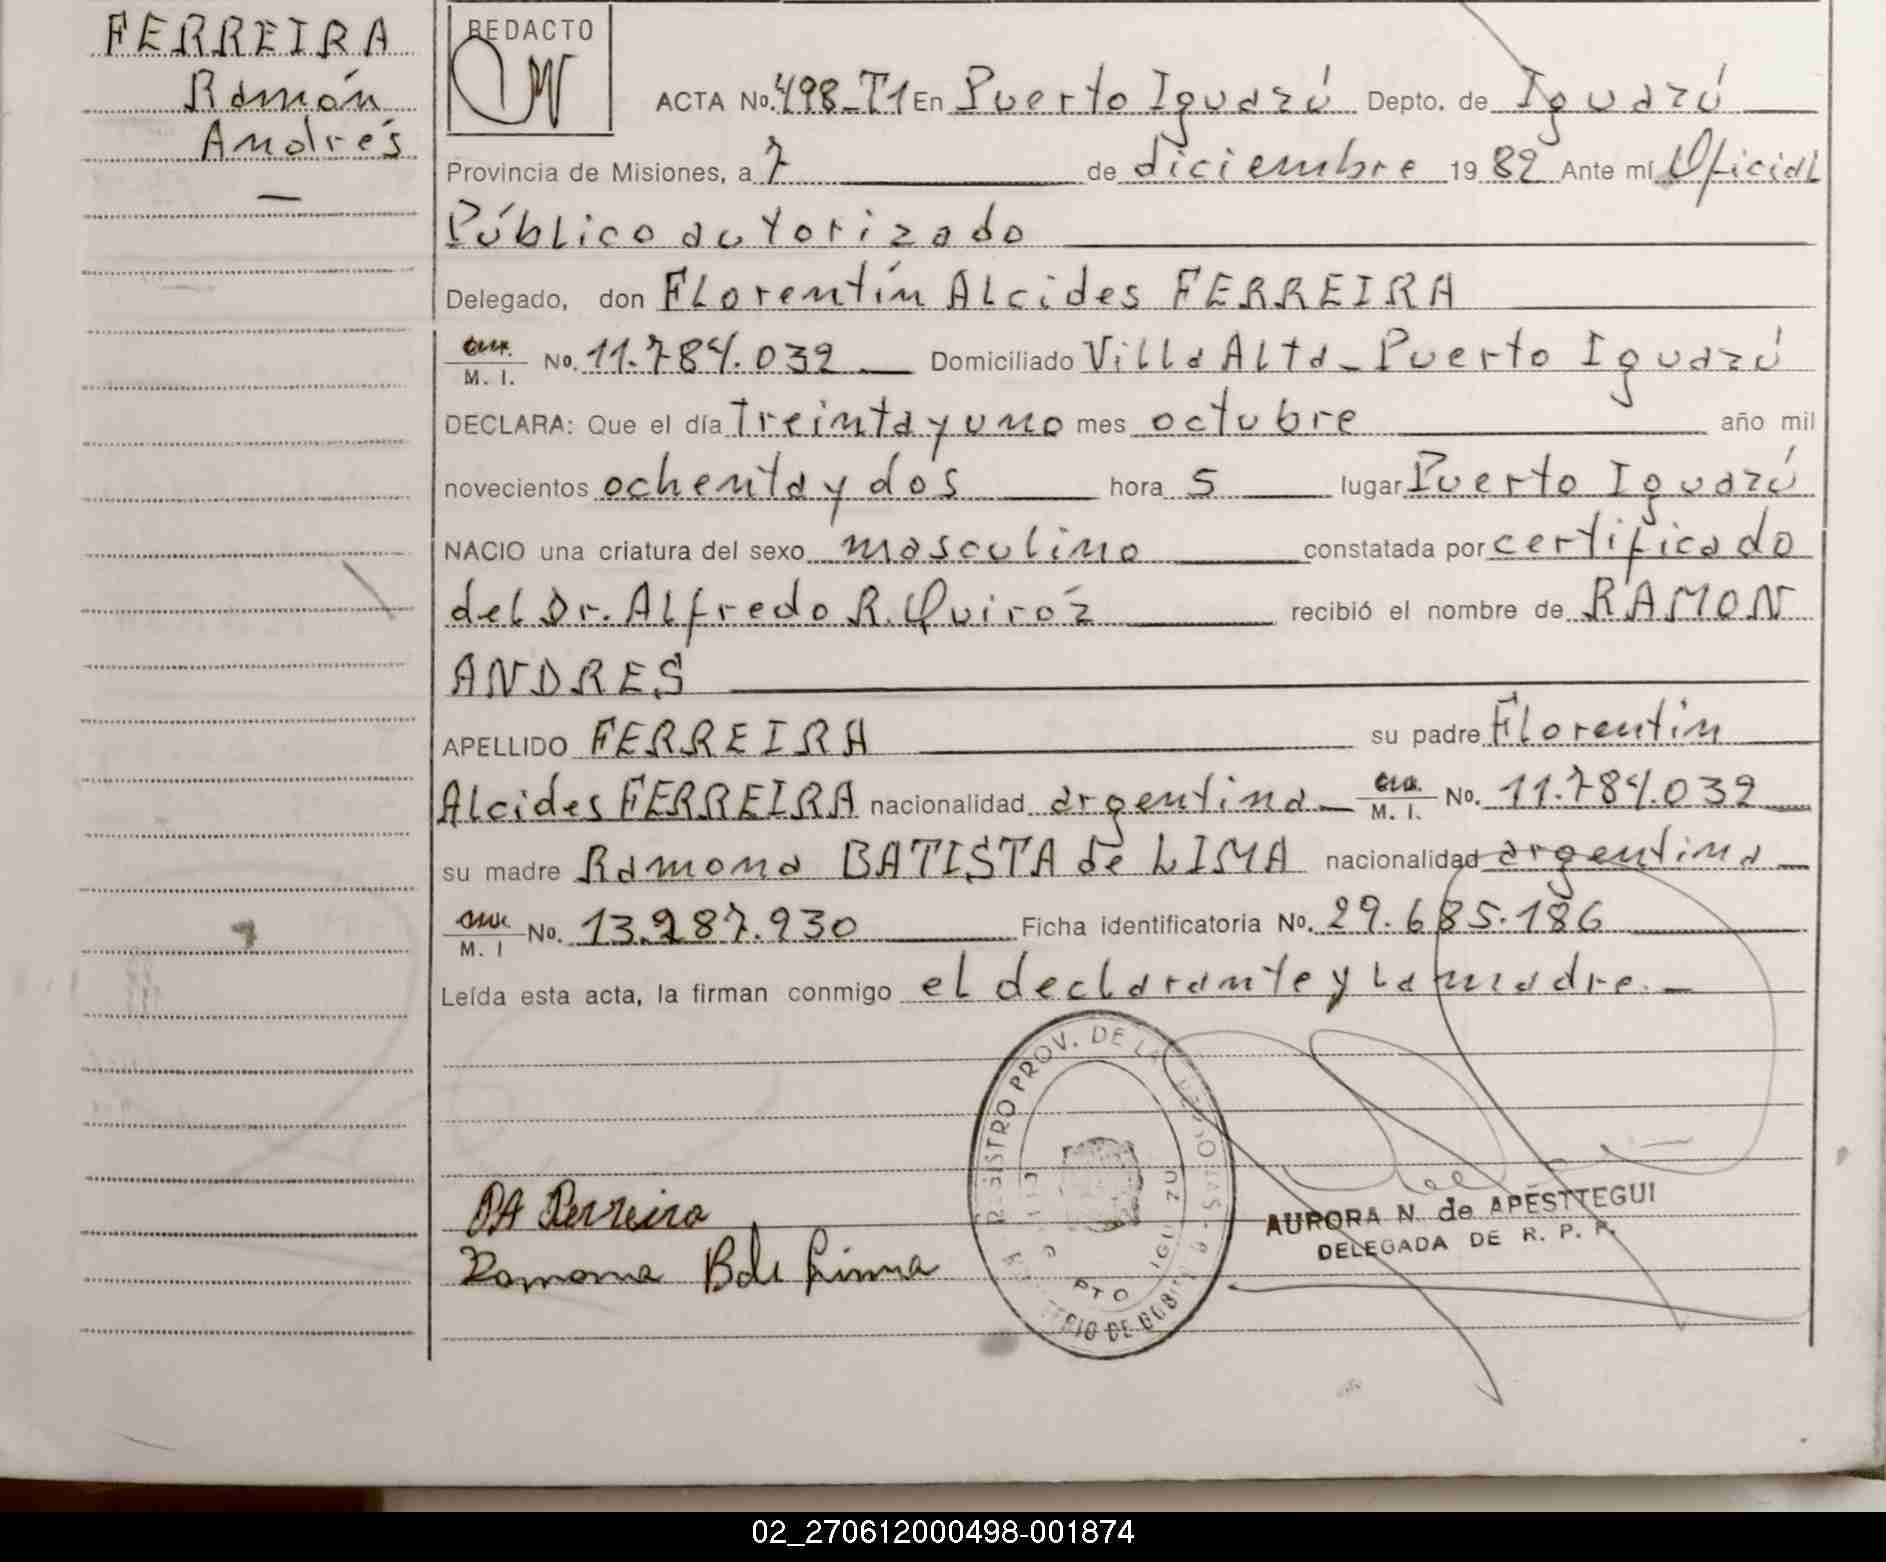 FERREIRA
Ramón
Andrés
REDACTO
ACTA No. 498-T1 En Puerto Iguazú Depto. de Iguazú
Provincia de Misiones, a 7 de diciembre 1982 Ante mí Oficial
Público autorizado
Delegado, don Florentín Alcides FERREIRA
M. I. No. 11.784.039 Domiciliado Villa Alta - Puerto Iguazú
DECLARA: Que el día treinta y uno mes octubre año mil
novecientos ochenta y dos hora 5 lugar Puerto Iguazú
NACIO una criatura del sexo masculino constatada por certificado
del Dr. Alfredo R. Quiróz recibió el nombre de RAMON
ANDRES
APELLIDO FERREIRA su padre Florentín
Alcides FERREIRA nacionalidad argentina M. I. No. 11.784.039
su madre Ramona BATISTA de LIMA nacionalidad argentina
M. I No. 13.987.930 Ficha identificatoria No. 29.685.186
Leída esta acta, la firman conmigo el declarante y la madre.
REGISTRO PROV. DE LAS PERSONAS
PTO IGUAZU
Ferreira
Ramona B de Lima
AURORA N. de APESTTEGUI
DELEGADA DE R. P. P.
02_270612000498-001874